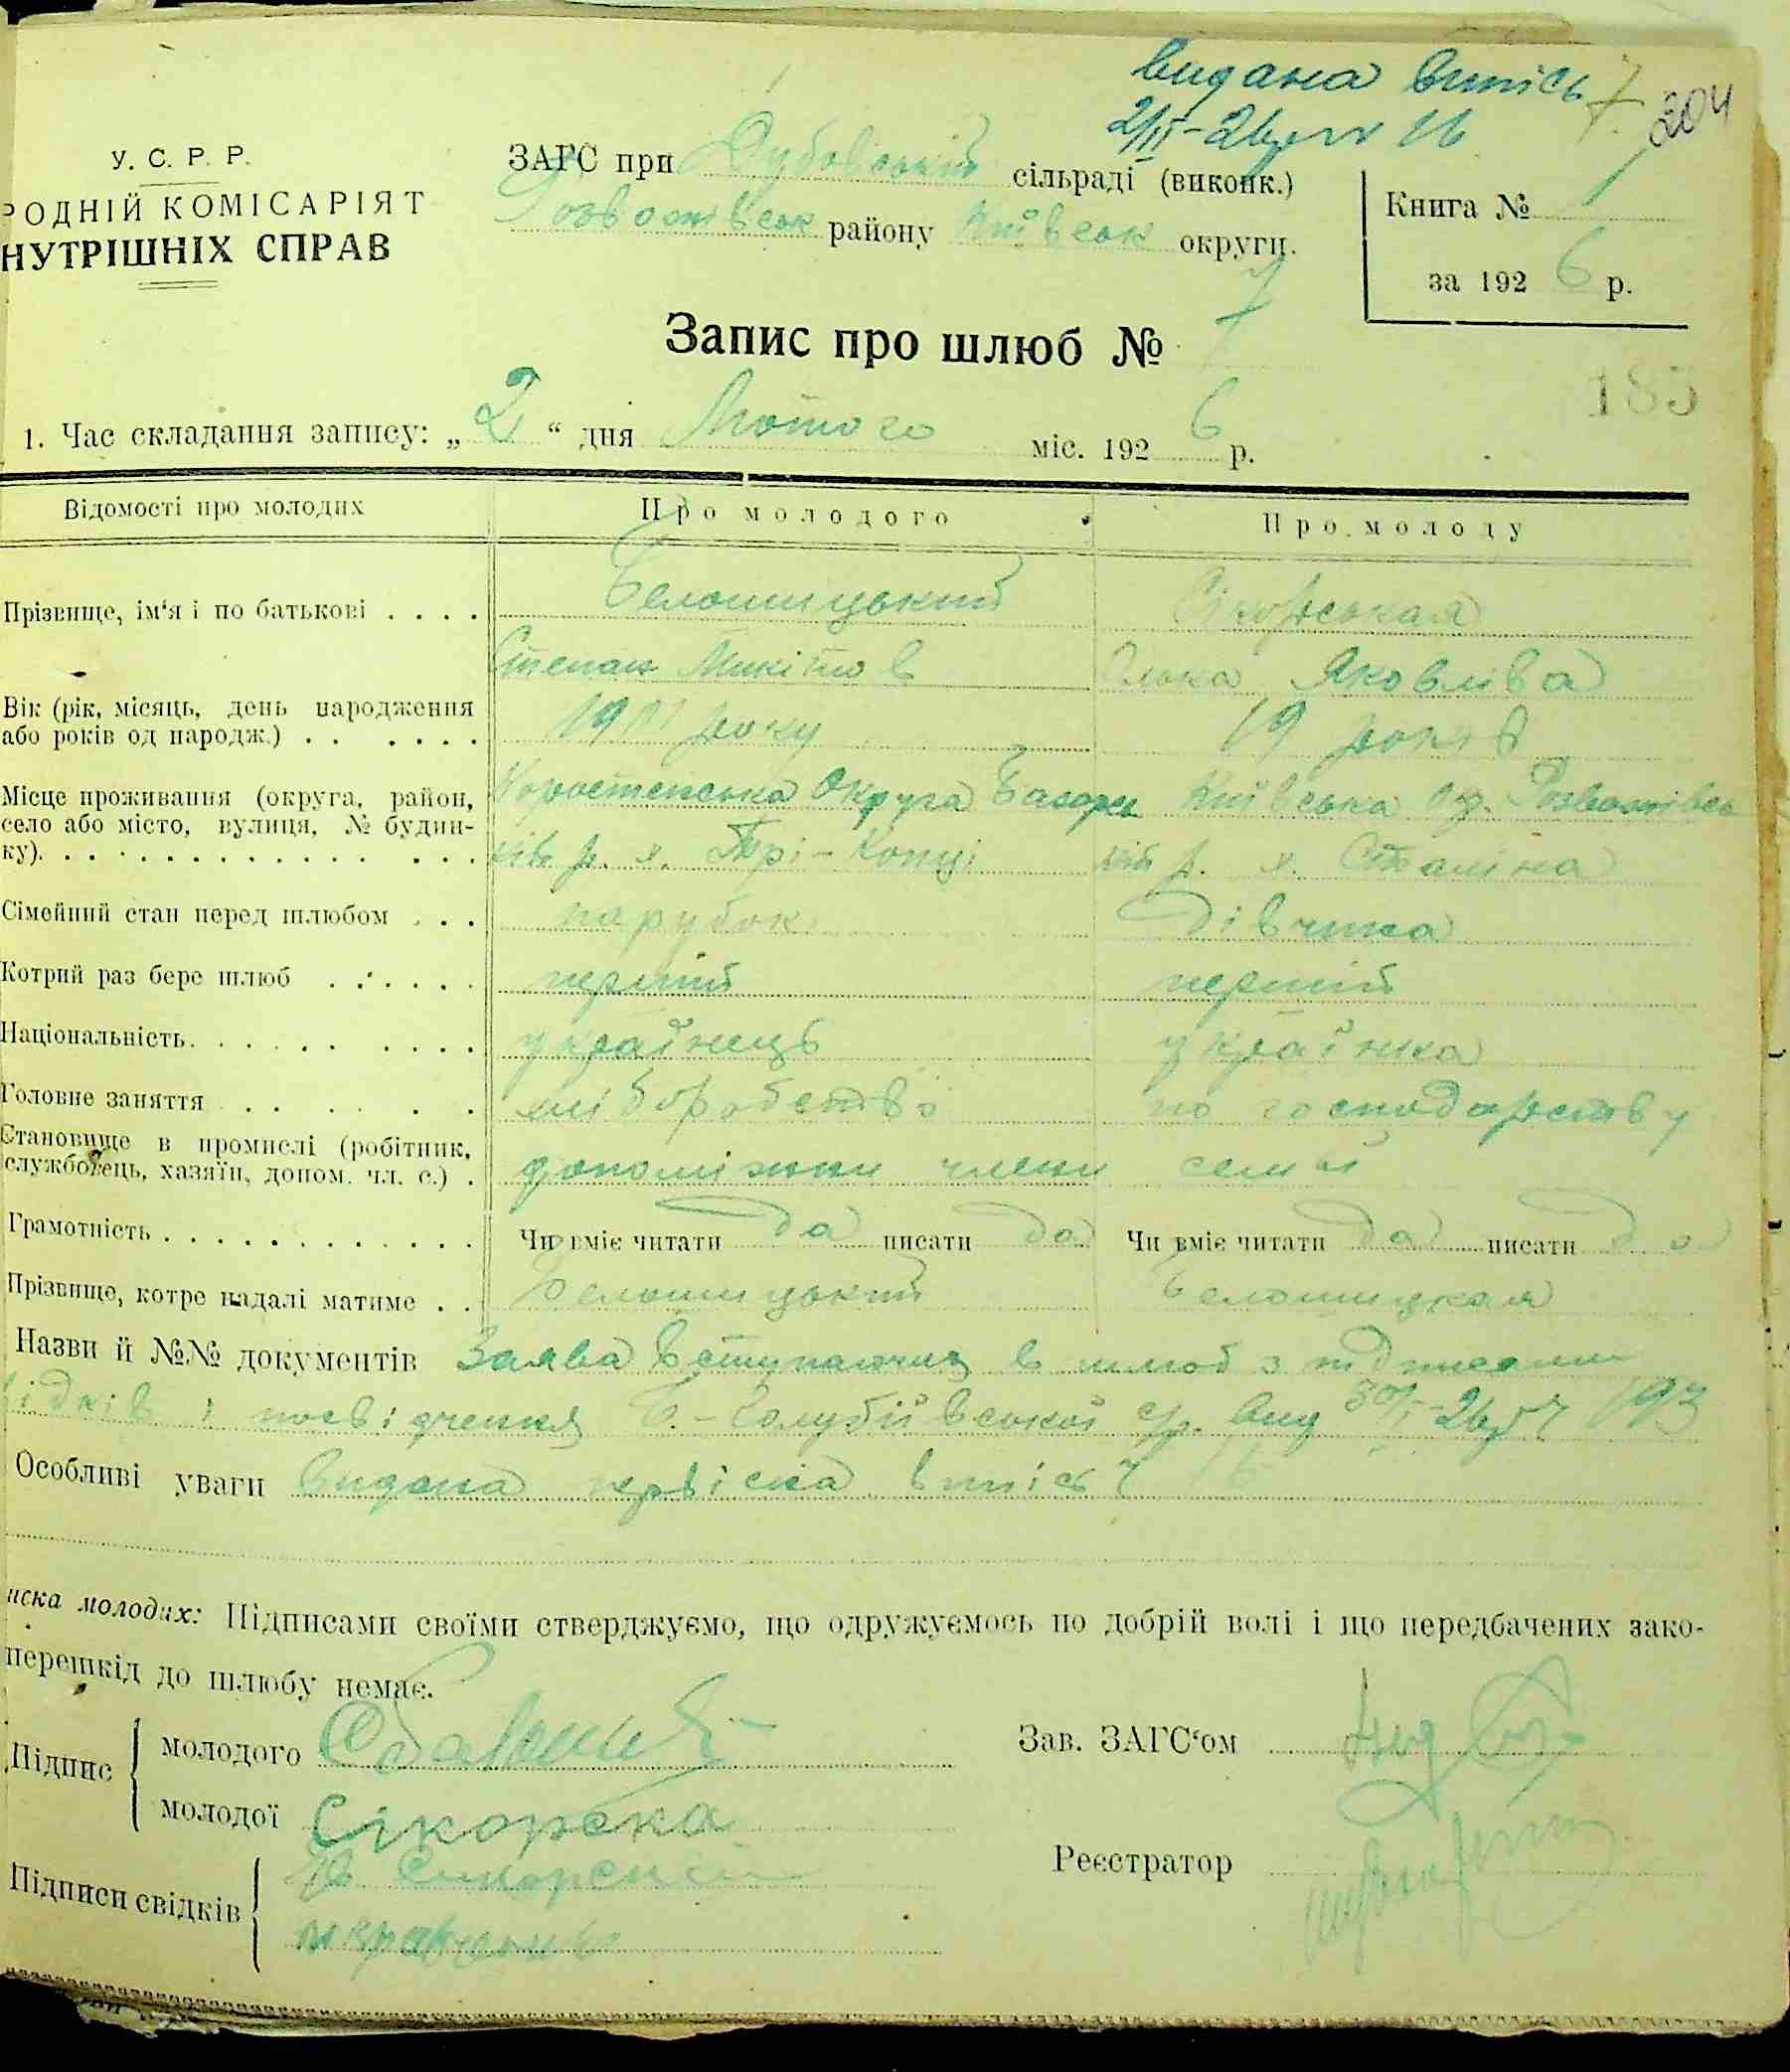 видана витісь 7 204
2/II-26 р № 16
У. С. Р. Р.
РОДНІЙ КОМІСАРІЯТ
НУТРІШНІХ СПРАВ
ЗАГС при Дубовській сільраді (виконк.)
Розвотівськ району Київськ округи.
Книга № 1
за 1926 р.
Запис про шлюб № 7
185
1. Час складання запису: „2“ дня Лютого міс. 1926 р.
Відомості про молодих Про молодого Про молоду
Прізвище, ім'я і по батькові . . . . Белошицький Сікорськая
Степан Микітов Яковліва
Вік (рік, місяць, день народження
або років од народж.) . . . . . . 1901 року 19 років
Місце проживання (округа, район, Коростенська Округа Базарс Київська Ок. Розвотівсь
село або місто, вулиця, № будин-
ку). кій р. х. Трі-Копці кій р. х. Сталіна
Сімейний стан перед шлюбом . . . парубок дівчина
Котрий раз бере шлюб . . . . . . перший перший
Національність. українець українка
Головне заняття хліборобство по господарству
Становище в промислі (робітник,
службовець, хазяїн, допом. чл. с.) . допоміжни члени семьї
Грамотність Чи вміє читати да писати да Чи вміє читати да писати да
Прізвище, котре надалі матиме . . Белошицький Белошицкая
Назви й №№ документів Заява вступаючих в шлюб з підписами
ідків і посвідчення Б.-Голубіївської с/р. вид 30/I-26 р 193
Особливі уваги видана первісна витісь
иска молодих: Підписами своїми стверджуємо, що одружуємось по добрій волі і що передбачених зако-
перешкід до шлюбу немає.
Підпис молодого
молодої Сікорска
Зав. ЗАГС'ом
Підписи свідків
Реєстратор